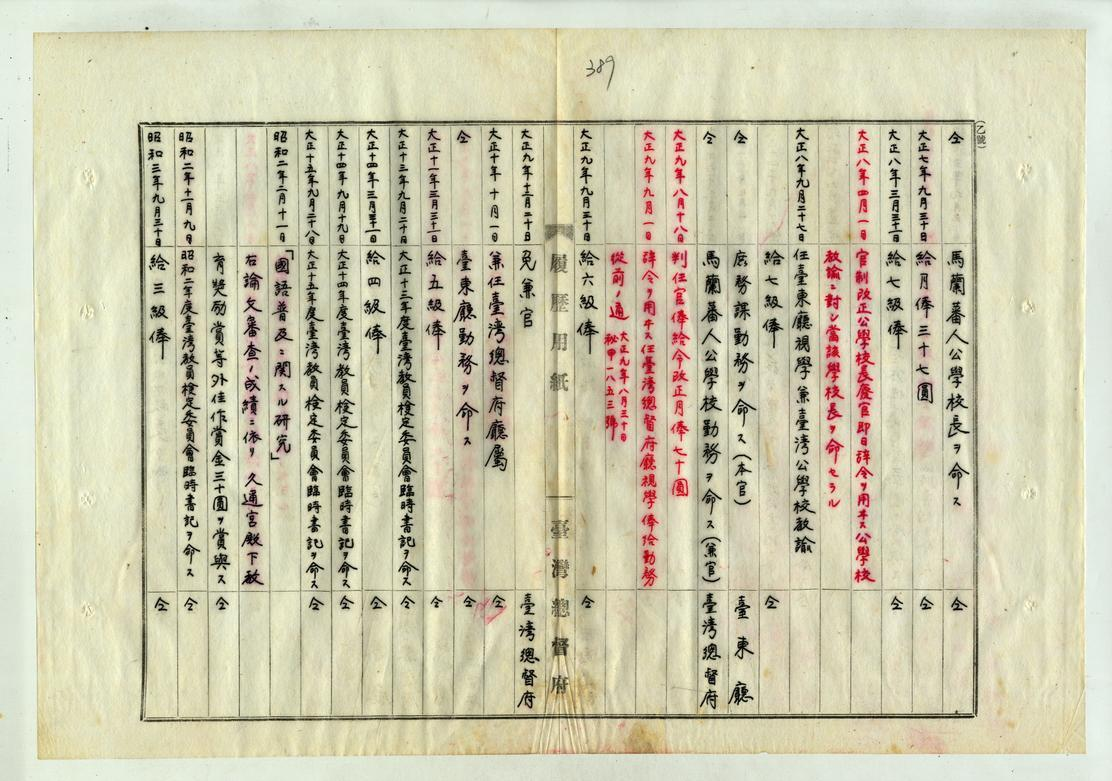 389
(乙號)
仝 馬蘭蕃人公學校長ヲ命ス 仝
大正七年九月三十日 給月俸三十七圓 仝
大正八年三月三十一日 給七級俸 仝
大正八年四月一日 官制改正公學校長廢官即日辞令ヲ用ヰス公學校
教諭ニ對シ當該學校長ヲ命セラル
大正八年九月二十七日 任臺東廳視學兼臺灣公學校教諭
給七級俸 仝
仝 庶務課勤務ヲ命ス(本官) 臺東廳
仝 馬蘭蕃人公學校勤務ヲ命ス(兼官) 臺湾總督府
大正九年八月十八日 判任官俸給令改正月俸七十圓
大正九年九月一日 辞令ヲ用ヰス任臺湾總督府廳視學俸給勤務
從前ノ通 大正九年八月三十日 秘甲一八五三號
大正九年九月三十日 給六級俸 仝
履歷用紙 臺灣總督府
大正九年十二月二十日 免兼官 臺湾總督府
大正十年十月一日 兼任臺湾總督府廳屬 仝
仝 臺東廳勤務ヲ命ス 仝
大正十一年三月三十一日 給五級俸 仝
大正十三年九月二十日 大正十三年度臺湾教員檢定委員會臨時書記ヲ命ス 仝
大正十四年三月三十一日 給四級俸 仝
大正十四年九月十九日 大正十四年度臺湾教員檢定委員會臨時書記ヲ命ス 仝
大正十五年九月二十八日 大正十五年度臺湾教員檢定委員會臨時書記ヲ命ス 仝
昭和二年二月十一日 「國語普及ニ関スル研究」
右論文審査ノ成績ニ依リ 久邇宮殿下教
育奨励賞等外佳作賞金三十圓ヲ賞與ス 仝
昭和二年十一月九日 昭和二年度臺湾教員檢定委員會臨時書記ヲ命ス 仝
昭和三年九月三十日 給三級俸 仝